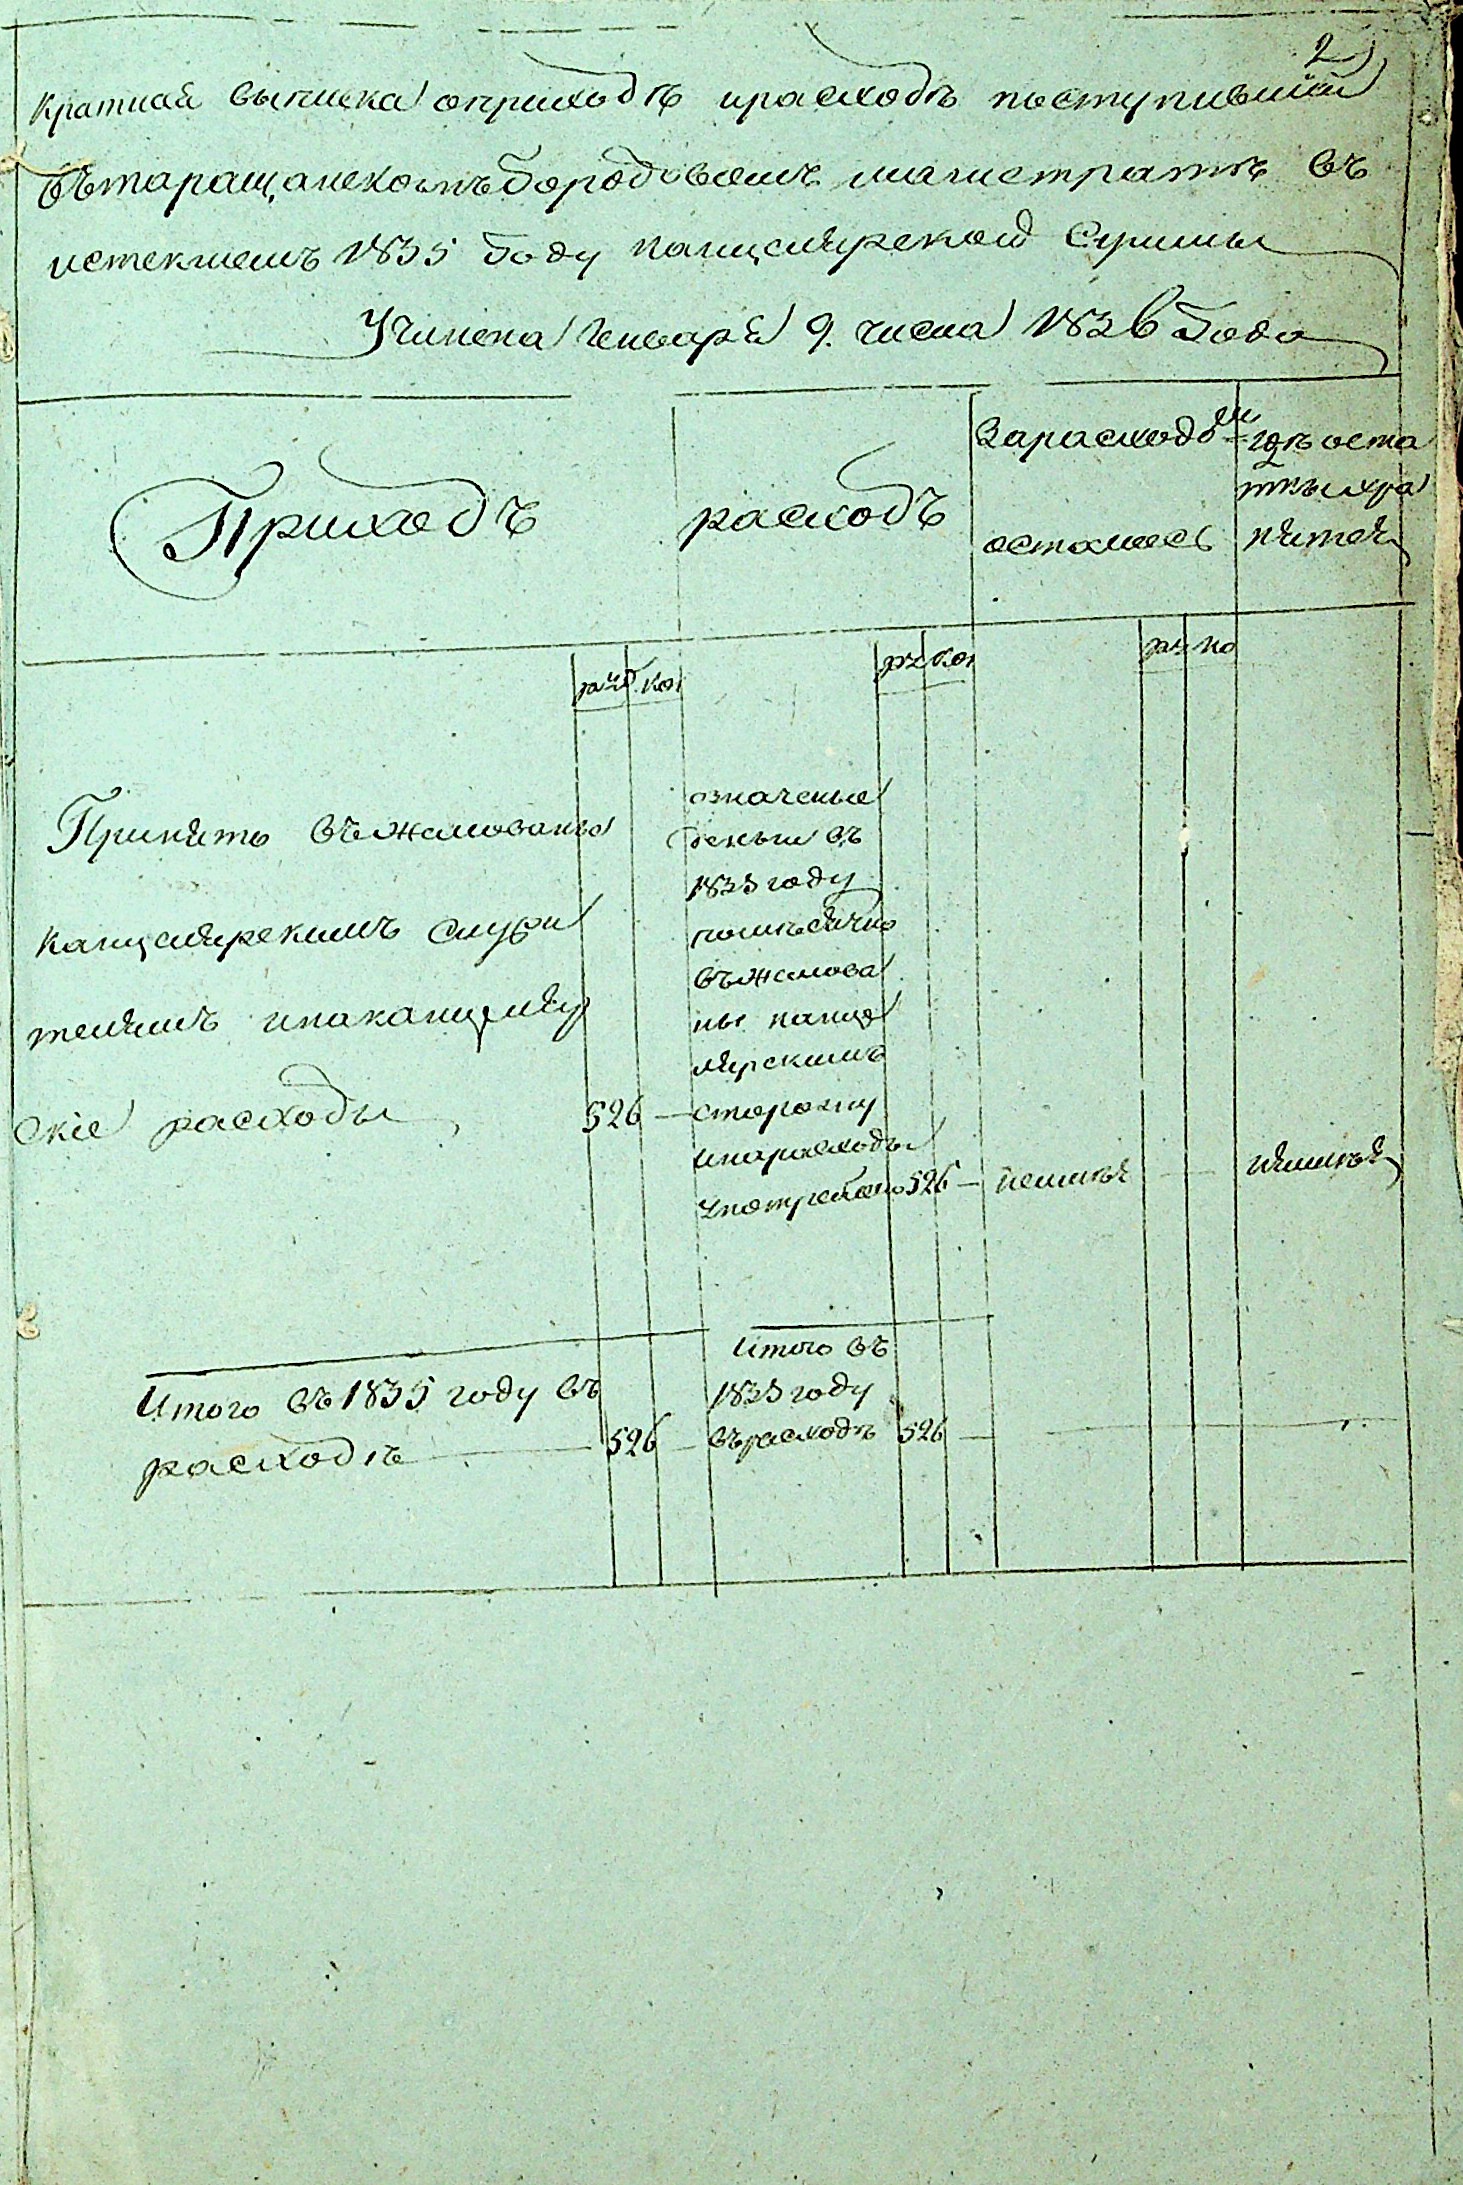 2
Краткая выписка оприходѣ ирасходѣ поступившой
вътаращанскомъ городовомъ магистратѣ въ
истекшемъ 1835 Году канцелярской Суммы
Учинена Генваря 9. числа 1836 Года
Приходъ
расходъ
Зарасходомъ
осталось
гдѣ оста
ткы хра
нятся
руб. коп
ру коп
ру ко
Принято въжалованье
Канцелярскимъ Служи
телямъ инаканцеляр
Скіе расходы 526 —
означеные
деньги въ
1835 году
помѣсячно
въжалова
ны канце
лярскимъ
сторожу
инарасходы
употреблено 526 —
неимѣя
неимѣя
Итого въ 1835 году въ
расходѣ 526 —
Итого въ
1835 году
върасходѣ 526 —